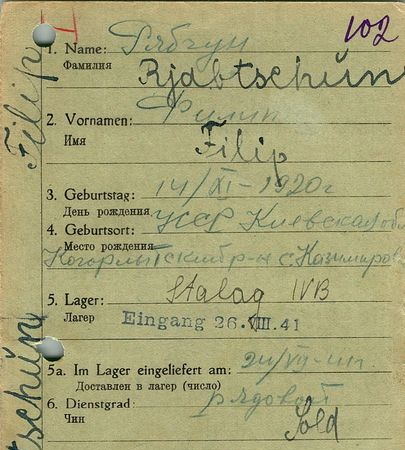 102
1. Name: Рябчун
Фамилия
Rjabtschun
2. Vornamen: Филип
Имя
Filip
3. Geburtstag: 14/XI-1920г
День рождения
4. Geburtsort: УССР Киевская обл
Место рождения
р-н с.
5. Lager: Stalag IVB
Лагер
Eingang 26. VIII. 41
5a. Im Lager eingeliefert am:
Доставлен в лагер (число)
6. Dienstgrad: рядовой
Чин
Sold
Filip
tschun